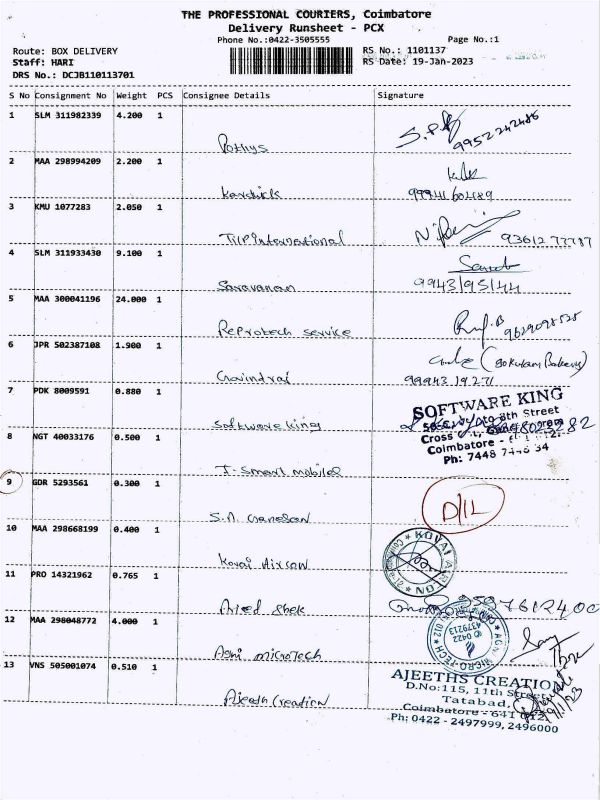 THE PROFESSIONAL COURIERS, Coimbatore
Delivery Runsheet - PCX
Phone No.:0422-3505555
Page No.:1
Route: BOX DELIVERY
RS No.: 1101137
Staff: HARI
RS Date: 19-Jan-2023
DRS No.: DCJB110113701
S No Consignment No Weight PCS Consignee Details Signature
1 SLM 311982339 4.200 1
Pothys
2 MAA 298994209 2.200 1
Karthik
3 KMU 1077283 2.050 1
TTP International
4 SLM 311933430 9.100 1
Saravanan
5 MAA 300041196 24.000 1
Reprotech service
6 JPR 502387108 1.900 1
Govindraj
7 PDK 8009591 0.880 1
Software king
SOFTWARE KING
8th Street
Cross
Coimbatore -
Ph: 7448
8 NGT 40033176 0.500 1
I-Smart mobiles
9 GDR 5293561 0.300 1
D/L
S.N. Ganesan
10 MAA 298668199 0.400 1
KOVAI AIRSON
Kovai Airson
11 PRO 14321962 0.765 1
12 MAA 298048772 4.000 1
MICRO-TECH
0422
4379213
Agni microtech
13 VNS 505001074 0.510 1
Ajeeth Creation
AJEETHS CREATION
D.No:115, 11th Street
Tatabad,
Coimbatore - 641 012.
Ph: 0422 - 2497999, 2496000
19/1/23